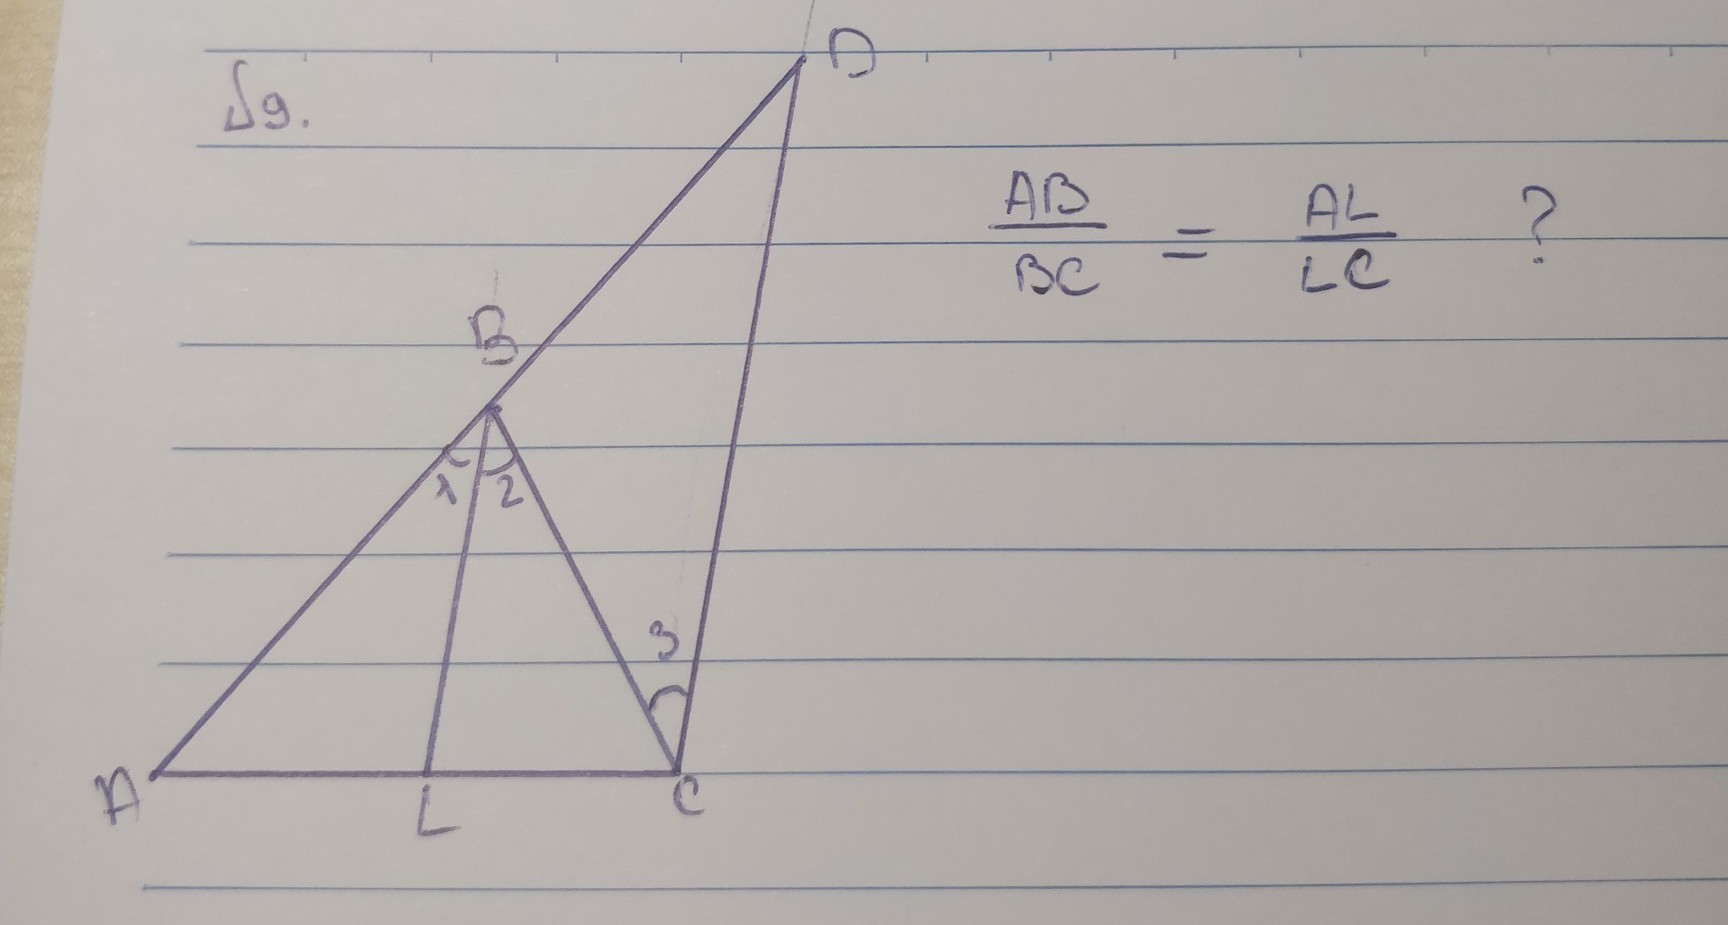 №9.
D
AB/BC = AL/LC ?
B
1 2
3
A L C